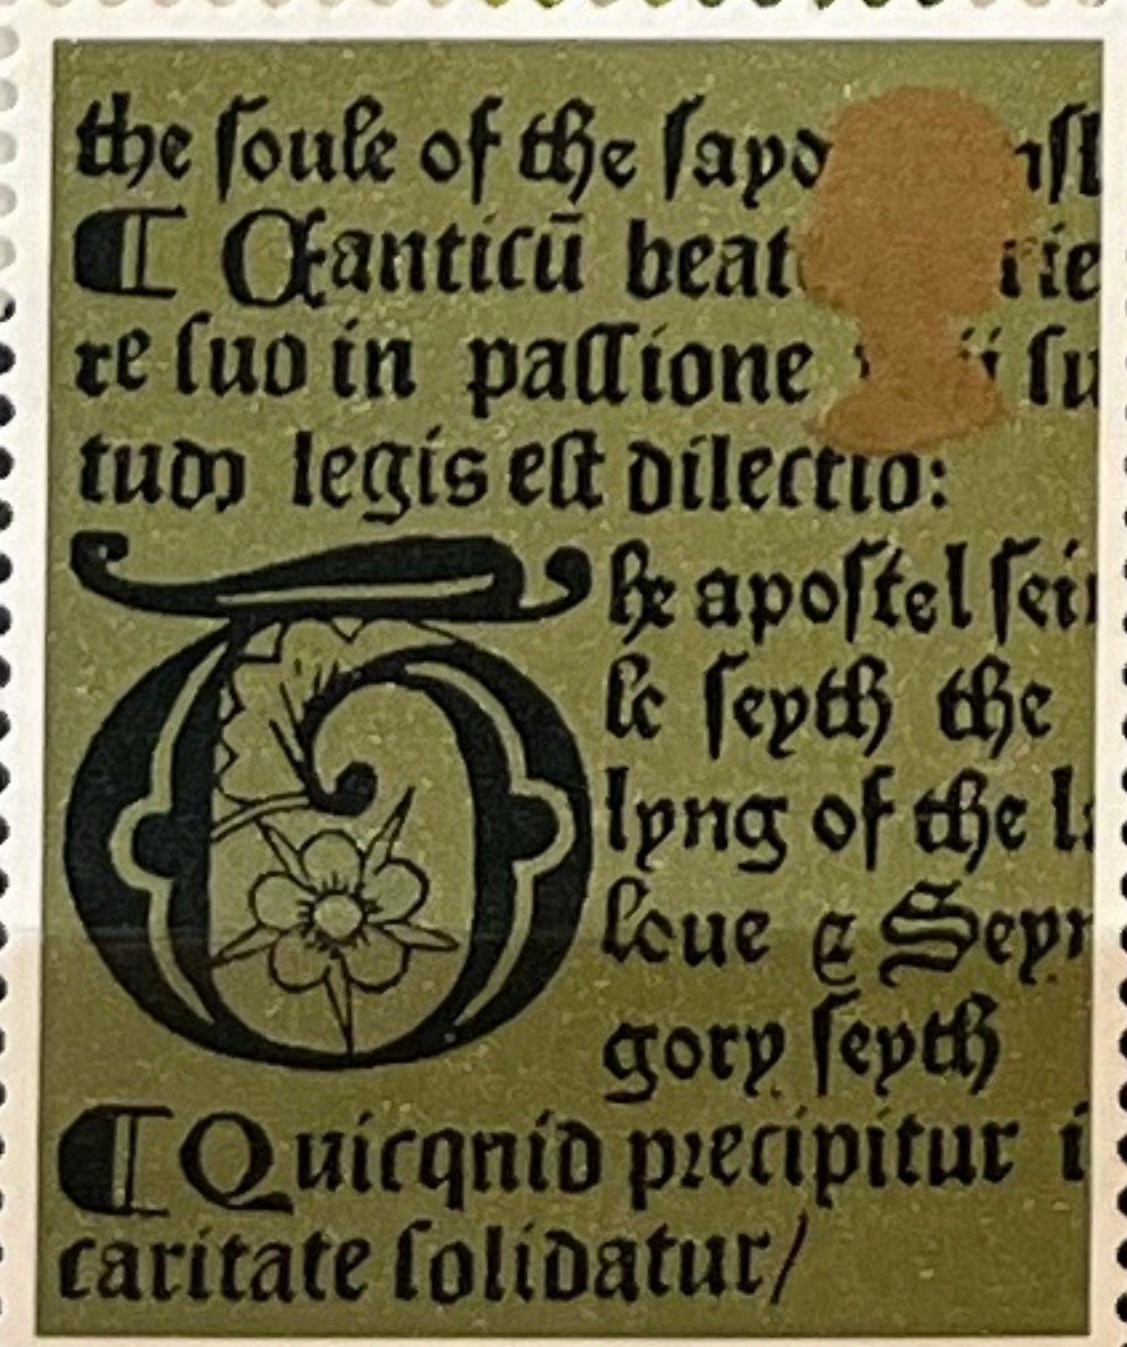 the ſoule of the ſayd
¶ Canticū beat
re ſuo in paſſione ſu
tum legis eſt dilectio:
The apoſtel ſei
le ſeyth the
lyng of the l
loue & Sey
gory ſeyth
¶ Quicqnid precipitur i
caritate ſolidatur/